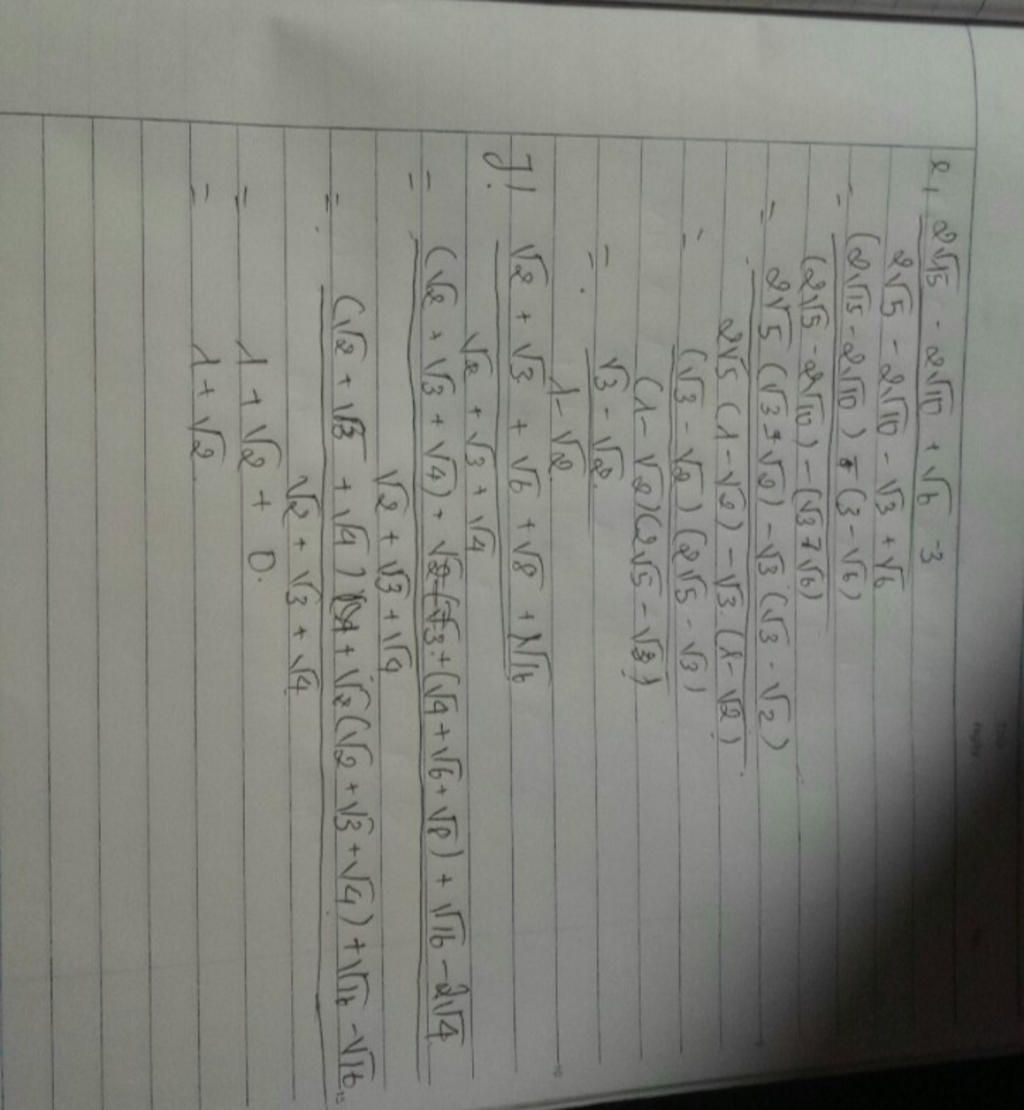 e, 2√15 - 2√10 + √6 - 3
2√5 - 2√10 - √3 + √6
= (2√15 - 2√10) - (3 - √6)
(2√5 - 2√10) - (√3 - √6)
= 2√5 (√3 - √2) - √3 (√3 - √2)
2√5 (1 - √2) - √3 (1 - √2)
= (√3 - √2) (2√5 - √3)
(1 - √2) (2√5 - √3)
= √3 - √2
1 - √2
√2 + √3 + √6 + √8 + √16
√2 + √3 + √4
= (√2 + √3 + √4) + (√4 + √6 + √8) + √16 - 2√4
√2 + √3 + √4
= (√2 + √3 + √4) + √2 (√2 + √3 + √4) + √16 - √16
√2 + √3 + √4
= 1 + √2 + 0.
= 1 + √2